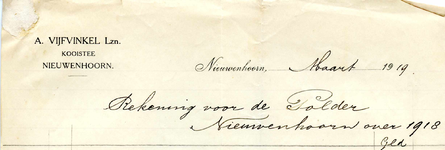 A. VIJFVINKEL Lzn.
KOOISTEE
NIEUWENHOORN.
Nieuwenhoorn, Maart 1919.
Rekening voor de Polder
Nieuwenhoorn over 1918
Geld